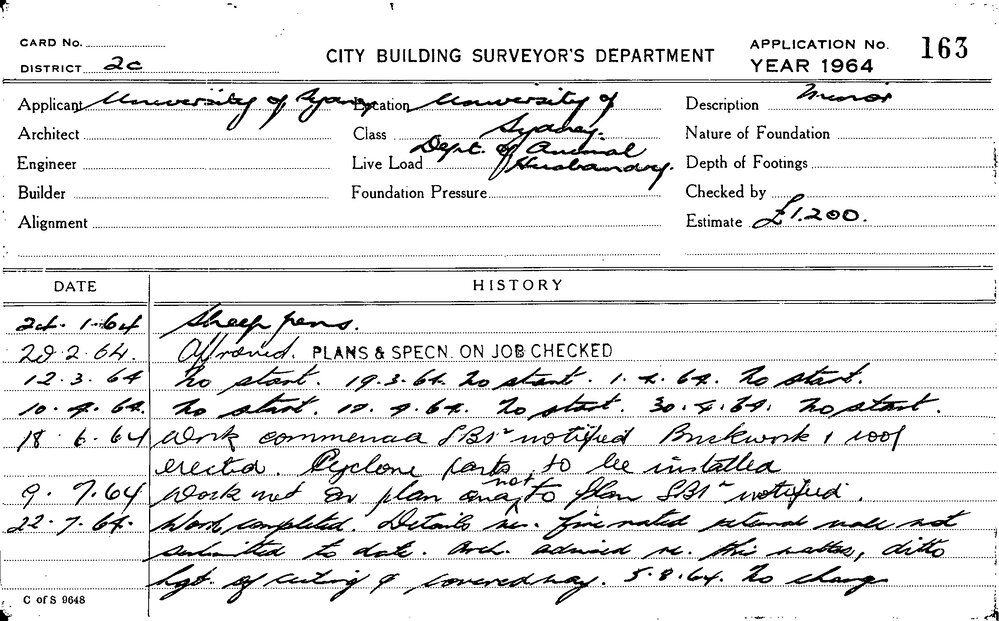 CARD No.
DISTRICT 2c
CITY BUILDING SURVEYOR'S DEPARTMENT
APPLICATION No. 163
YEAR 1964
Applicant University of Sydney
Location University of
Sydney.
Description Minor
Architect
Class
Dept. of Animal
Nature of Foundation
Engineer
Live Load Husbandry.
Depth of Footings
Builder
Foundation Pressure
Checked by
Alignment
Estimate £1,200.
DATE
HISTORY
24. 1. 64 Sheep pens.
20. 2. 64. Approved. PLANS & SPECN. ON JOB CHECKED
12. 3. 64 No start. 19.3.64. No start. 1. 4. 64. No start.
10. 4. 64. No start. 17. 4. 64. No start. 30. 4. 64. No start.
18 6. 64 Work commenced notified Brickwork & roof
erected. Cyclone parts to be installed
9. 7. 64 Work not on plan not to plan notified.
22. 7. 64. Work completed. Details re. fire rated external walls not
submitted to date. Arch. advised re. this matter, ditto
hgt. of ceiling of coveredway. 5. 8. 64. No change
C of S 9648